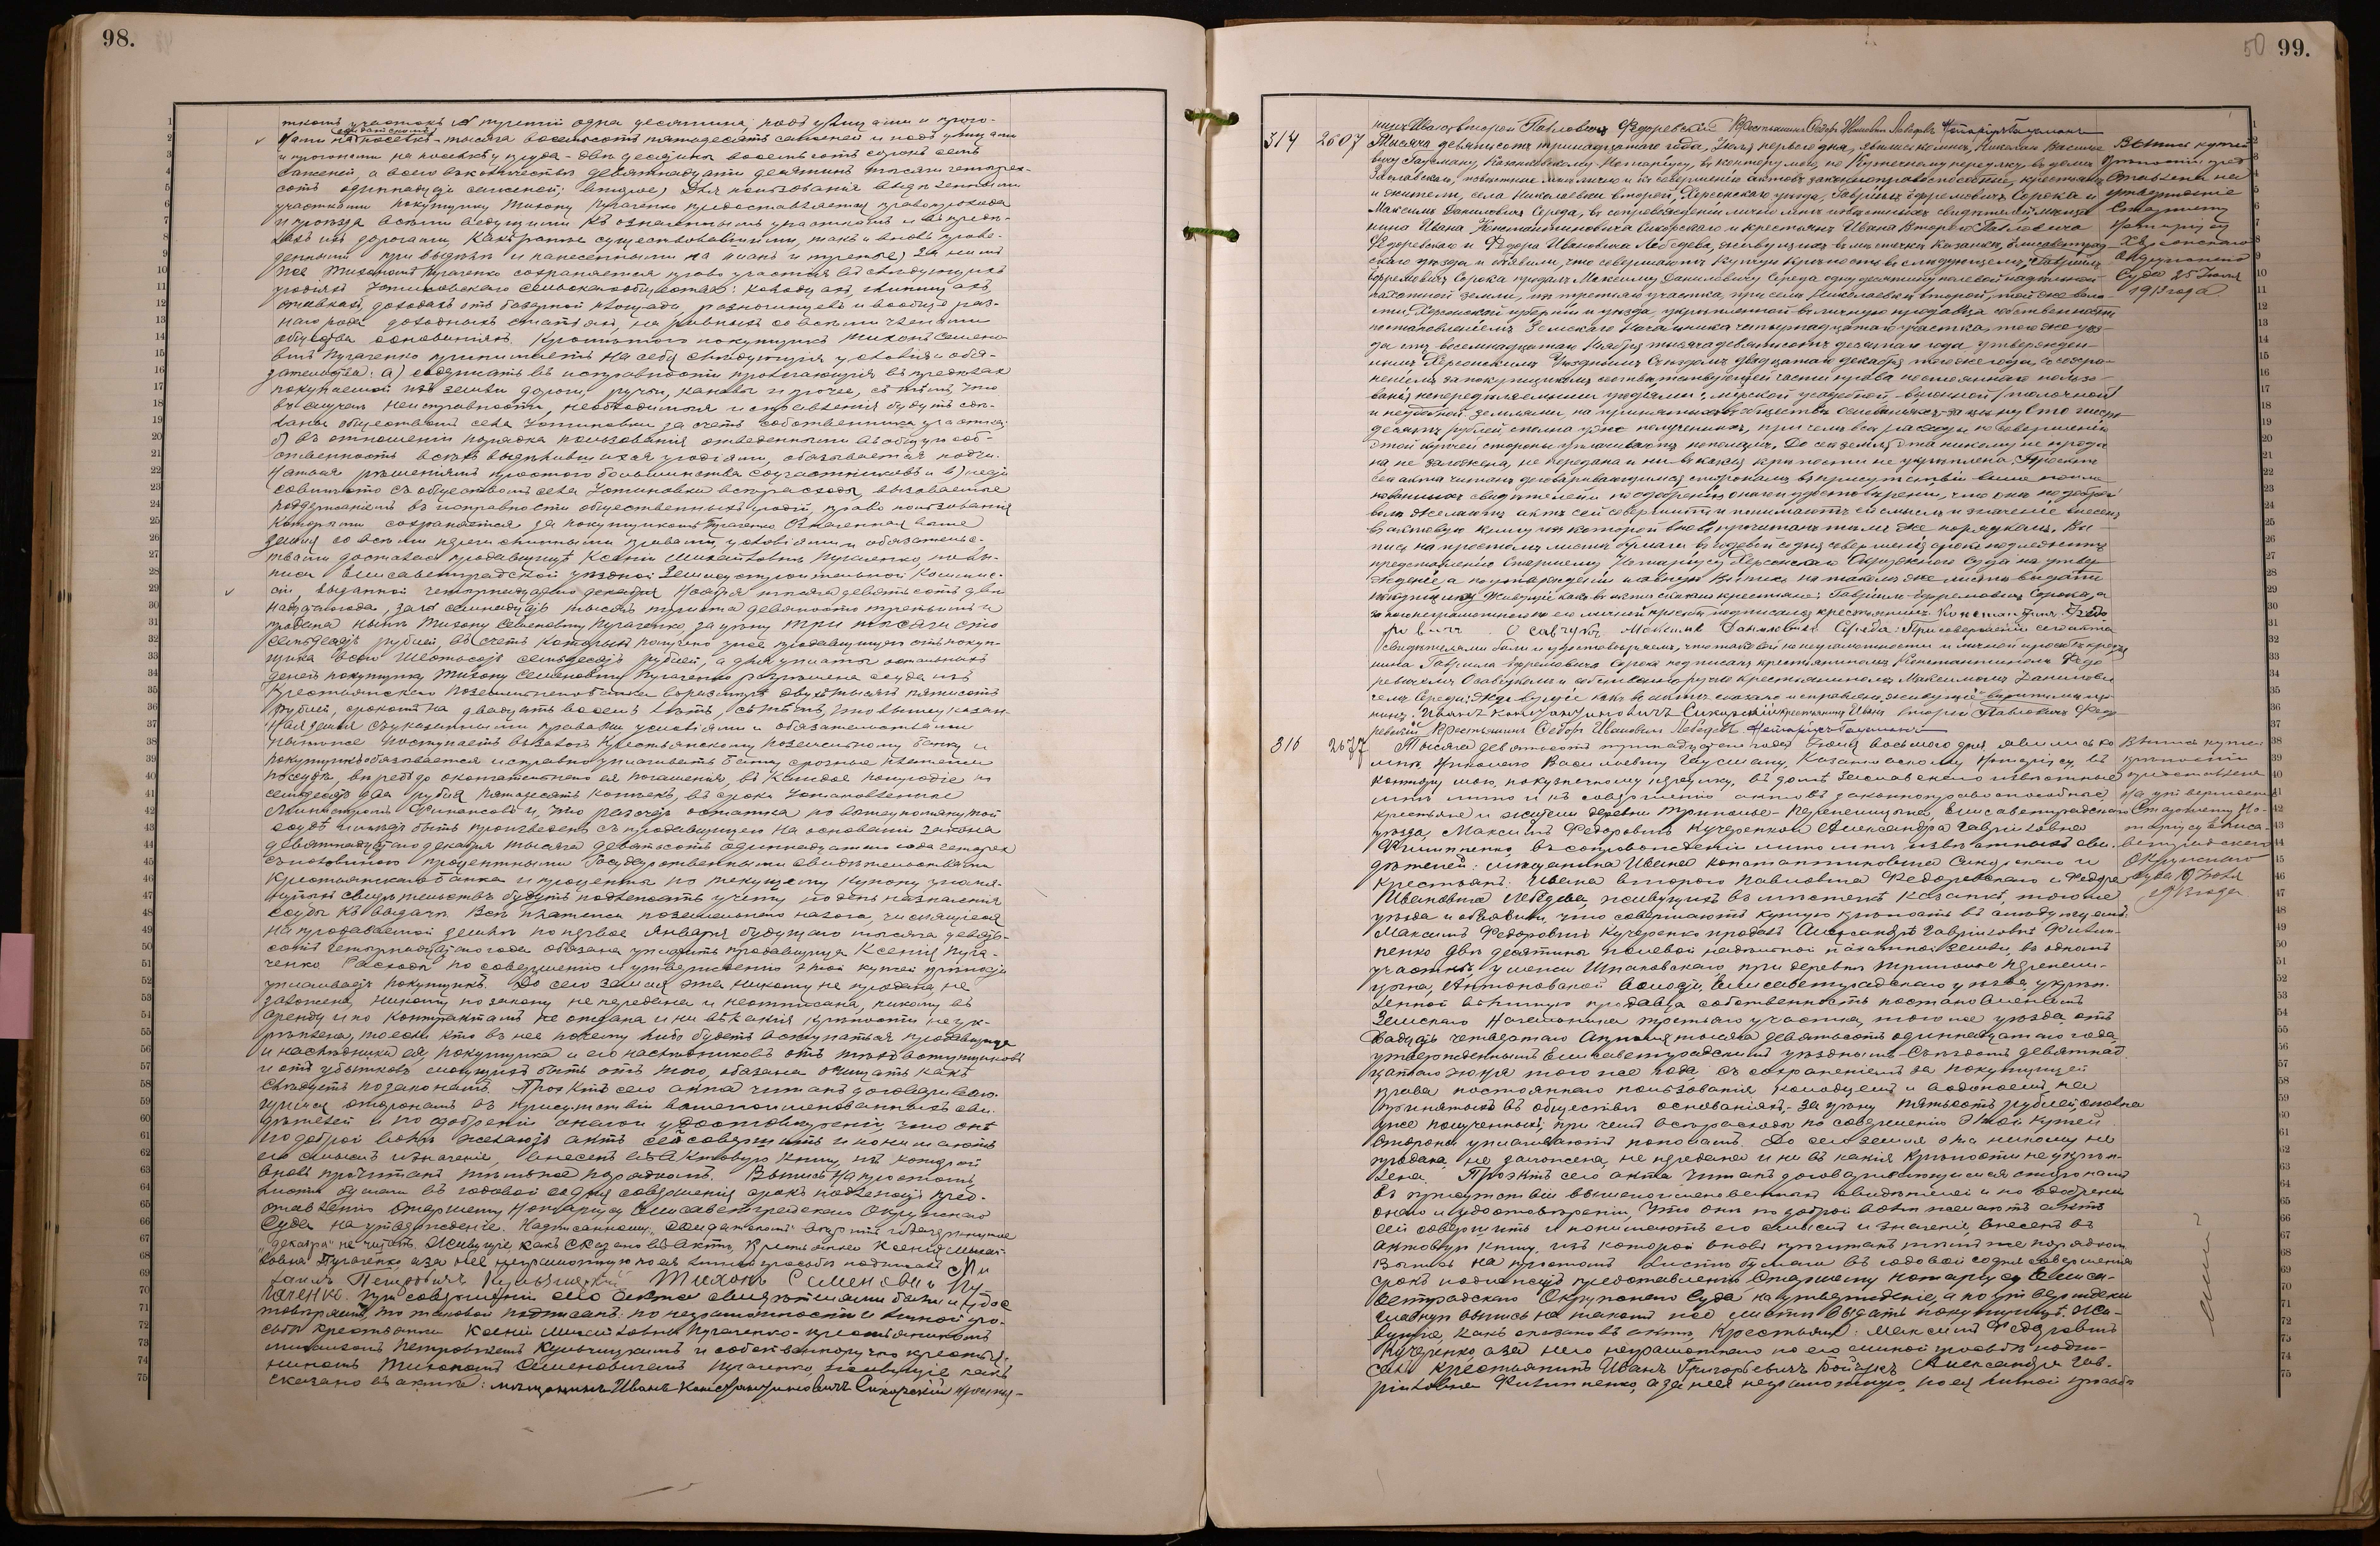 98.
ткомъ участокъ и третiй одна десятина, подъ улицами и прого-
нами на солдатскомъ поселкѣ - тысяча восемьсотъ пятьдесятъ саженей и подъ улицами
и прогономъ на поселкѣ у пруда - двѣ десятины восемьсотъ сорокъ семь
саженей, а всего въ количествѣ девятнадцати десятинъ тысячи четырех-
сотъ одиннадцати саженей; второе) Для пользованiя выдѣленными
участками покупщику Тихону Пугаченко предоставляется право прохода
и проѣзда всѣми ведущими къ означеннымъ участкамъ и въ предѣ-
лахъ ихъ дорогами, какъ ранѣе существовавшими, такъ и вновь прове-
денными при выдѣлѣ и нанесенными на планъ и третье) За нимъ
же Тихономъ Пугаченко сохраняется право участiя въ слѣдующихъ
угодьяхъ Устиновскаго сельскаго общества: колодцахъ,
доходахъ отъ базарной площади, разночинцевъ и вообще раз-
наго рода доходныхъ статьяхъ, на равныхъ со всѣми членами
общества основанiяхъ. Кромѣ того покупщикъ Тихонъ Семено-
вичъ Пугаченко принимаетъ на себя слѣдующiя условiя и обя-
зательства: а) содержать въ исправности пролегающiя въ предѣлахъ
покупаемой имъ земли дороги, ручьи, канавы и прочее, съ тѣмъ, что
въ случаѣ неисправности, необходимыя исправленiя будутъ сдѣ-
ланы обществомъ села Устиновки за счетъ собственника участка;
б) въ отношенiи порядка пользованiя отведенными въ общую соб-
ственность всѣхъ выдѣлившихся угодьями, обязывается подчи-
няться рѣшенiямъ простого большинства соучастниковъ и в) нести
совмѣстно съ обществомъ села Устиновки всѣ расходы, вызываемые
поддержанiемъ въ исправности общественныхъ угодiй, право пользованiя
которыми сохраняется за покупщикомъ Пугаченко. Означенная выше
земля со всѣми перечисленными правами, условiями и обязательс-
твами досталась продавщицѣ Ксенiи Михайловнѣ Пугаченко, по вы-
писи Елисаветградской уѣздной Землеустроительной Комис-
сiи, выданной четырнадцатаго декабря Ноября тысяча девятьсотъ две-
надцатаго года, за № семнадцать тысячъ триста девяносто третьимъ и
продана нынѣ Тихону Семеновичу Пугаченко, за цѣну три тысячи сто
семьдесятъ рублей, въ счетъ которыхъ получено уже продавщицею отъ покуп-
щика всего шестьсотъ семьдесятъ рублей, а для уплаты остальныхъ
денегъ покупщику Тихону Семеновичу Пугаченко разрѣшена ссуда изъ
Крестьянскаго Поземельнаго банка въ размѣрѣ двухъ тысячъ пятисотъ
рублей, срокомъ на двадцать восемь лѣтъ, съ тѣмъ, что вышеуказан-
ная земля съ указанными правами условiями и обязательствами
нынѣ же поступаетъ въ залогъ Крестьянскому Поземельному банку и
покупщикъ обязывается исправно уплачивать банку срочные платежи
по ссудѣ, впредь до окончательнаго ея погашенiя, въ каждое полугодiе по
семьдесятъ два рубля пятьдесятъ копѣекъ, въ сроки установленные
Министромъ Финансовъ и, что расчетъ остатка по вышеупомянутой
ссудѣ имѣетъ быть произведенъ съ продавщицею на основанiи закона
девятнадцатаго декабря тысяча девятьсотъ одиннадцатаго года четырех
съ половиною процентными Государственными свидѣтельствами
Крестьянскаго банка и проценты по текущему купону упомя-
нутыхъ свидѣтельствъ будутъ подлежать учету по день назначенiя
ссуды къ выдачѣ. Всѣ платежи поземельнаго налога, числящiеся
на продаваемой землѣ по первое Января будущаго тысяча девять-
сотъ четырнадцатаго года обязана уплатить продавщица Ксенiя Пуга-
ченко. Расходы по совершенiю и утвержденiю этой купчей крѣпости
уплачиваетъ покупщикъ. До сего земля эта никому не продана, не
заложена, никому по закону не передана и не отписана, никому въ
аренду и по контрактамъ не отдана и ни въ какiя крѣпости не ук-
рѣплена, то если кто въ нее почему либо будетъ вступаться продавщица
и наслѣдники ея, покупщика и его наслѣдниковъ отъ тѣхъ вступщиковъ
и отъ убытковъ могущихъ быть отъ того, обязана очищать какъ
слѣдуетъ по законамъ. Проэктъ сего акта читанъ договариваю-
щимся сторонамъ въ присутствiи вышепоименованныхъ сви-
дѣтелей и по одобренiи онаго и удостовѣренiи что онѣ
по доброй волѣ желаютъ актъ сей совершить и понимаютъ
его смыслъ и значенiе, внесенъ въ актовую книгу, изъ которой
вновь прочитанъ тѣмъ же порядкомъ. Выпись на простомъ
листѣ бумаги въ годовой со дня совершенiя срокъ подлежитъ пред-
ставленiю Старшему Нотарiусу Елисаветградскаго Окружнаго
Суда на утвержденiе. Надписанному: „солдатскомъ" вѣрить и зачеркнутое
„декабря" не читать. Живущiе, какъ сказано въ актѣ, Крестьянка Ксенiя Михай-
ловна Пугаченко, а за нее неграмотную по ея личной просьбѣ подписался Ми-
хаилъ Петровичъ Тихонъ Семеновичъ Пу-
гаченко. При совершенiи сего акта свидѣтелями были и удос-
товѣряемъ, что таковой подписанъ: по неграмотности и личной про-
сьбѣ крестьянки Ксенiи Михайловны Пугаченко - крестьяниномъ
Михаиломъ Петровичемъ и собственноручно крестья-
ниномъ Тихономъ Семеновичемъ Пугаченко, живущiе какъ
сказано въ актѣ: мѣщанинъ Иванъ Константиновичъ Сикорскiй крестья-
50 99.
нинъ Иванъ второй Павловичъ Федоревскiй Крестьянинъ Федоръ Ивановичъ Лебедевъ Нотарiусъ Гаусманъ
314 2607 Тысяча девятьсотъ тринадцатаго года, Iюля перваго дня, явились ко мнѣ, Николаю Василье-
вичу Гаусману, Казанковскому Нотарiусу, въ контору мою, по Кузнечному переулку, въ домѣ
Заславскаго, извѣстные мнѣ лично и къ совершенiю актовъ законноправоспособные, крестьяне
и жители, села Николаевки второй, Херсонскаго уѣзда, Гаврiилъ Ефремовичъ Сорока и
Максимъ Даниловичъ Середа, въ сопровожденiи лично мнѣ извѣстныхъ свидѣтелей: мѣща-
нина Ивана Константиновича Сикорскаго и крестьянъ Ивана Второго Павловича
Федоревскаго и Федора Ивановича Лебедева, живущихъ въ мѣстечкѣ Казанкѣ, Елисаветград-
скаго уѣзда и объявили, что совершаютъ Купчую Крѣпость въ слѣдующемъ: Гаврiилъ
Ефремовичъ Сорока продалъ Максиму Даниловичу Середа одну десятину полевой надѣльной
пахотной земли, изъ третьяго участка, при селѣ Николаевкѣ второй, той же воло-
сти, Херсонской губернiи и уѣзда, укрѣпленной въ личную продавца собственность
постановленiемъ Земскаго Начальника четырнадцатаго участка, того же уѣз-
да отъ восемнадцатаго Ноября тысяча девятьсотъ десятаго года, утвержден-
нымъ Херсонскимъ Уѣзднымъ Съѣздомъ двадцатаго декабря того же года, съ сохра-
ненiемъ за покупщикомъ соотвѣтствующей части права постояннаго пользо-
ванiя непередѣляемыми угодьями: мiрской усадебной, выгонной (толочной)
и неудобной землями, на принятыхъ въ обществѣ основанiяхъ, за цѣну сто шесть-
десятъ рублей, сполна уже полученныхъ, при чемъ всѣ расходы по совершенiю
этой купчей стороны уплачиваютъ пополамъ. До сего земля эта никому не прода-
на не заложена, не передана и ни въ какiя крѣпости не укрѣплена. Проэктъ
сего акта читанъ договаривающимся сторонамъ въ присутствiи выше поиме-
нованныхъ свидѣтелей и по одобренiи онаго и удостовѣренiи, что они по доброй
волѣ желаютъ актъ сей совершить и понимаютъ его смыслъ и значенiе внесенъ
въ актовую книгу изъ которой вновь прочитанъ тѣмъ же порядкомъ. Вы-
пись на простомъ листѣ бумаги въ годовой со дня совершенiя срокъ подлежитъ
представленiю Старшему Нотарiусу Херсонскаго Окружнаго Суда на утвер-
жденiе, а по утвержденiи главную Выпись на такомъ же листѣ выдать
покупщику. Живущiе какъ въ актѣ сказано крестьяне: Гаврiилъ Ефремовичъ Сорока, а
за него неграмотнаго по его личной просьбѣ подписался крестьянинъ Константинъ Федо-
ровичъ Осавчукъ Максимъ Даниловичъ Середа: При совершенiи сего акта
свидѣтелями были и удостовѣряемъ, что таковой по неграмотности и личной просьбѣ крестья-
нина Гаврiила Ефремовича Сорока подписанъ крестьяниномъ Константиномъ Федо-
ровичемъ Осавчукомъ и собственноручно крестьяниномъ Максимомъ Данилови-
чемъ Середа; Живущiе какъ въ актѣ сказано и исправленное „живущiе" вѣрить мѣща-
нинъ: Иванъ Константиновичъ Сикорскiй крестьянинъ Иванъ второй Павловичъ Федо-
ревскiй Крестьянинъ Федоръ Ивановичъ Лебедевъ Нотарiусъ Гаусманъ
Выпись купчей
крѣпости пред-
ставлена на
утвержденiе
Старшему
Нотарiусу
Херсонскаго
Окружнаго
Суда 25 Iюля
1913 года
316 2677 Тысяча девятьсотъ тринадцатаго года Iюля восьмого дня явились ко
мнѣ, Николаю Васильевичу Гаусману, Казанковскому Нотарiусу, въ
контору мою, по Кузнечному переулку, въ домѣ Заславскаго извѣстные
мнѣ лично и къ совершенiю актовъ законноправоспособные,
крестьяне и жители деревни Тринолье-Перепелицына, Елисаветградскаго
уѣзда, Максимъ Федоровичъ Кучеренко и Александра Гавриловна
Филипненко въ сопровожденiи лично мнѣ извѣстныхъ сви-
дѣтелей: мѣщанина Ивана Константиновича Сикорскаго и
крестьянъ: Ивана второго Павловича Федоревскаго и Федора
Ивановича Лебедева, живущихъ въ мѣстечкѣ Казанкѣ, того же
уѣзда и объявили, что совершаютъ купчую крѣпость въ слѣдующемъ:
Максимъ Федоровичъ Кучеренко продалъ Александрѣ Гавриловнѣ Филип-
ненко двѣ десятины полевой надѣльной пахотной земли, въ одномъ
участкѣ, у межи Шпаковскаго, при деревнѣ Тринолье Перепели-
цына, Антоновской волости, Елисаветградскаго уѣзда, укрѣп-
ленной въ личную продавца собственность постановленiемъ
Земскаго Начальника третьяго участка, того же уѣзда, отъ
двадцать четвертаго Апрѣля тысяча девятьсотъ одиннадцатаго года,
утвержденнымъ Елисаветградскимъ уѣзднымъ Съѣздомъ девятнад-
цатаго Iюля того же года съ сохраненiемъ за покупщицей
права постояннаго пользованiя колодцемъ и водопоемъ, на
принятыхъ въ обществѣ основанiяхъ, - за цѣну пятьсотъ рублей, сполна
уже полученныхъ, при чемъ всѣ расходы по совершенiю этой купчей
стороны уплачиваютъ пополамъ. До сего земля эта никому не
продана, не заложена, не передана и ни въ какiя крѣпости не укрѣп-
лена. Проэктъ сего акта читанъ договаривающимся сторонамъ
въ присутствiи вышепоименованныхъ свидѣтелей и по одобренiи
онаго и удостовѣренiи, что они по доброй волѣ желаютъ актъ
сей совершить и понимаютъ его смыслъ и значенiе, внесенъ въ
актовую книгу, изъ которой вновь прочитанъ тѣмъ же порядкомъ
Выпись на простомъ листѣ бумаги въ годовой со дня совершенiя
срокъ подлежитъ представленiю Старшему Нотарiусу Елиса-
ветградскаго Окружнаго Суда на утвержденiе, а по утвержденiи
главную выпись на такомъ же листѣ выдать покупщицѣ. Жи-
вущiе, какъ сказано въ актѣ, Крестьяне: Максимъ Федоровичъ
Кучеренко, а за него неграмотнаго по его личной просьбѣ подпи-
сался крестьянинъ Иванъ Григорьевичъ Бойчукъ Александра Гав-
риловна Филипненко, а за нея неграмотную, по ея личной просьбѣ
Выпись купчей
крѣпости
представлена
на утвержденiе
Старшему Но-
тарiусу Елиса-
ветградскаго
Окружнаго
Суда Iюля
1913 года